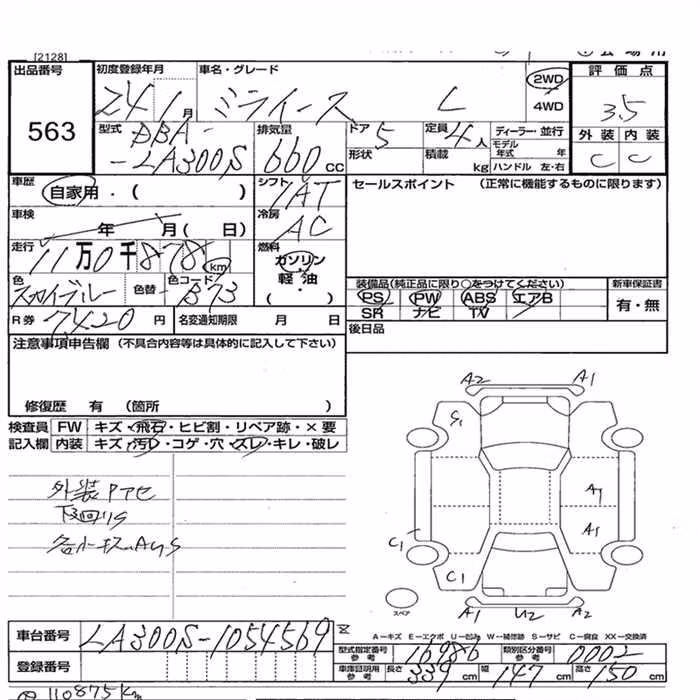 [2128]
出品番号 初度登録年月 車名・グレード 2WD 評価点
563 24 1月 ミライース L 4WD 3.5
型式 DBA- 排気量 ドア 5 定員 4人 ディーラー・並行 外装 内装
-LA300S 660cc 形状 積載 kg モデル年式 年 C C
ハンドル 左・右
車歴 自家用・( ) シフト IAT セールスポイント (正常に機能するものに限ります)
車検 年 月( 日) 冷房 AC
走行 11万0千878km 燃料 ガソリン
軽油
( ・ )
色 スカイブルー 色替 色コード B73 装備品(純正品に限り○をつけてください) 新車保証書
PS PW ABS エアB 有・無
R券 7420円 名変通知期限 月 日 SR ナビ TV
後日品
注意事項申告欄 (不具合内容等は具体的に記入して下さい)
修復歴 有 (箇所 )
検査員 FW キズ・飛石・ヒビ割・リペア跡・×要
記入欄 内装 キズ・汚レ・コゲ・穴・スレ・キレ・破レ
A2 A1
G1
外装Pアセ
下回りS
A1
A1
C1
C1
スペア
A1 U2 A2
A−キズ E−エクボ U−凹み W−補修跡 S−サビ C−腐食 XX−交換済
車台番号 LA300S-1054569
型式指定番号 参考 16986 類別区分番号 参考 0002
登録番号
車庫証明用 参考 長さ 339cm 幅 147cm 高さ 150cm
110875km